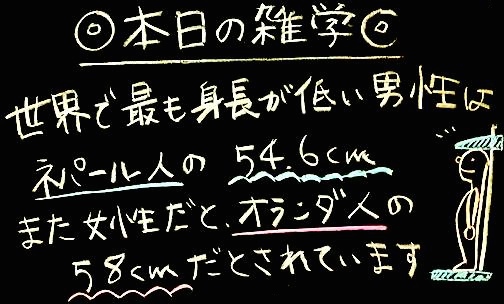 ◎本日の雑学◎
世界で最も身長が低い男性は
ネパール人の 54.6cm
また女性だと、オランダ人の
58cmだとされています